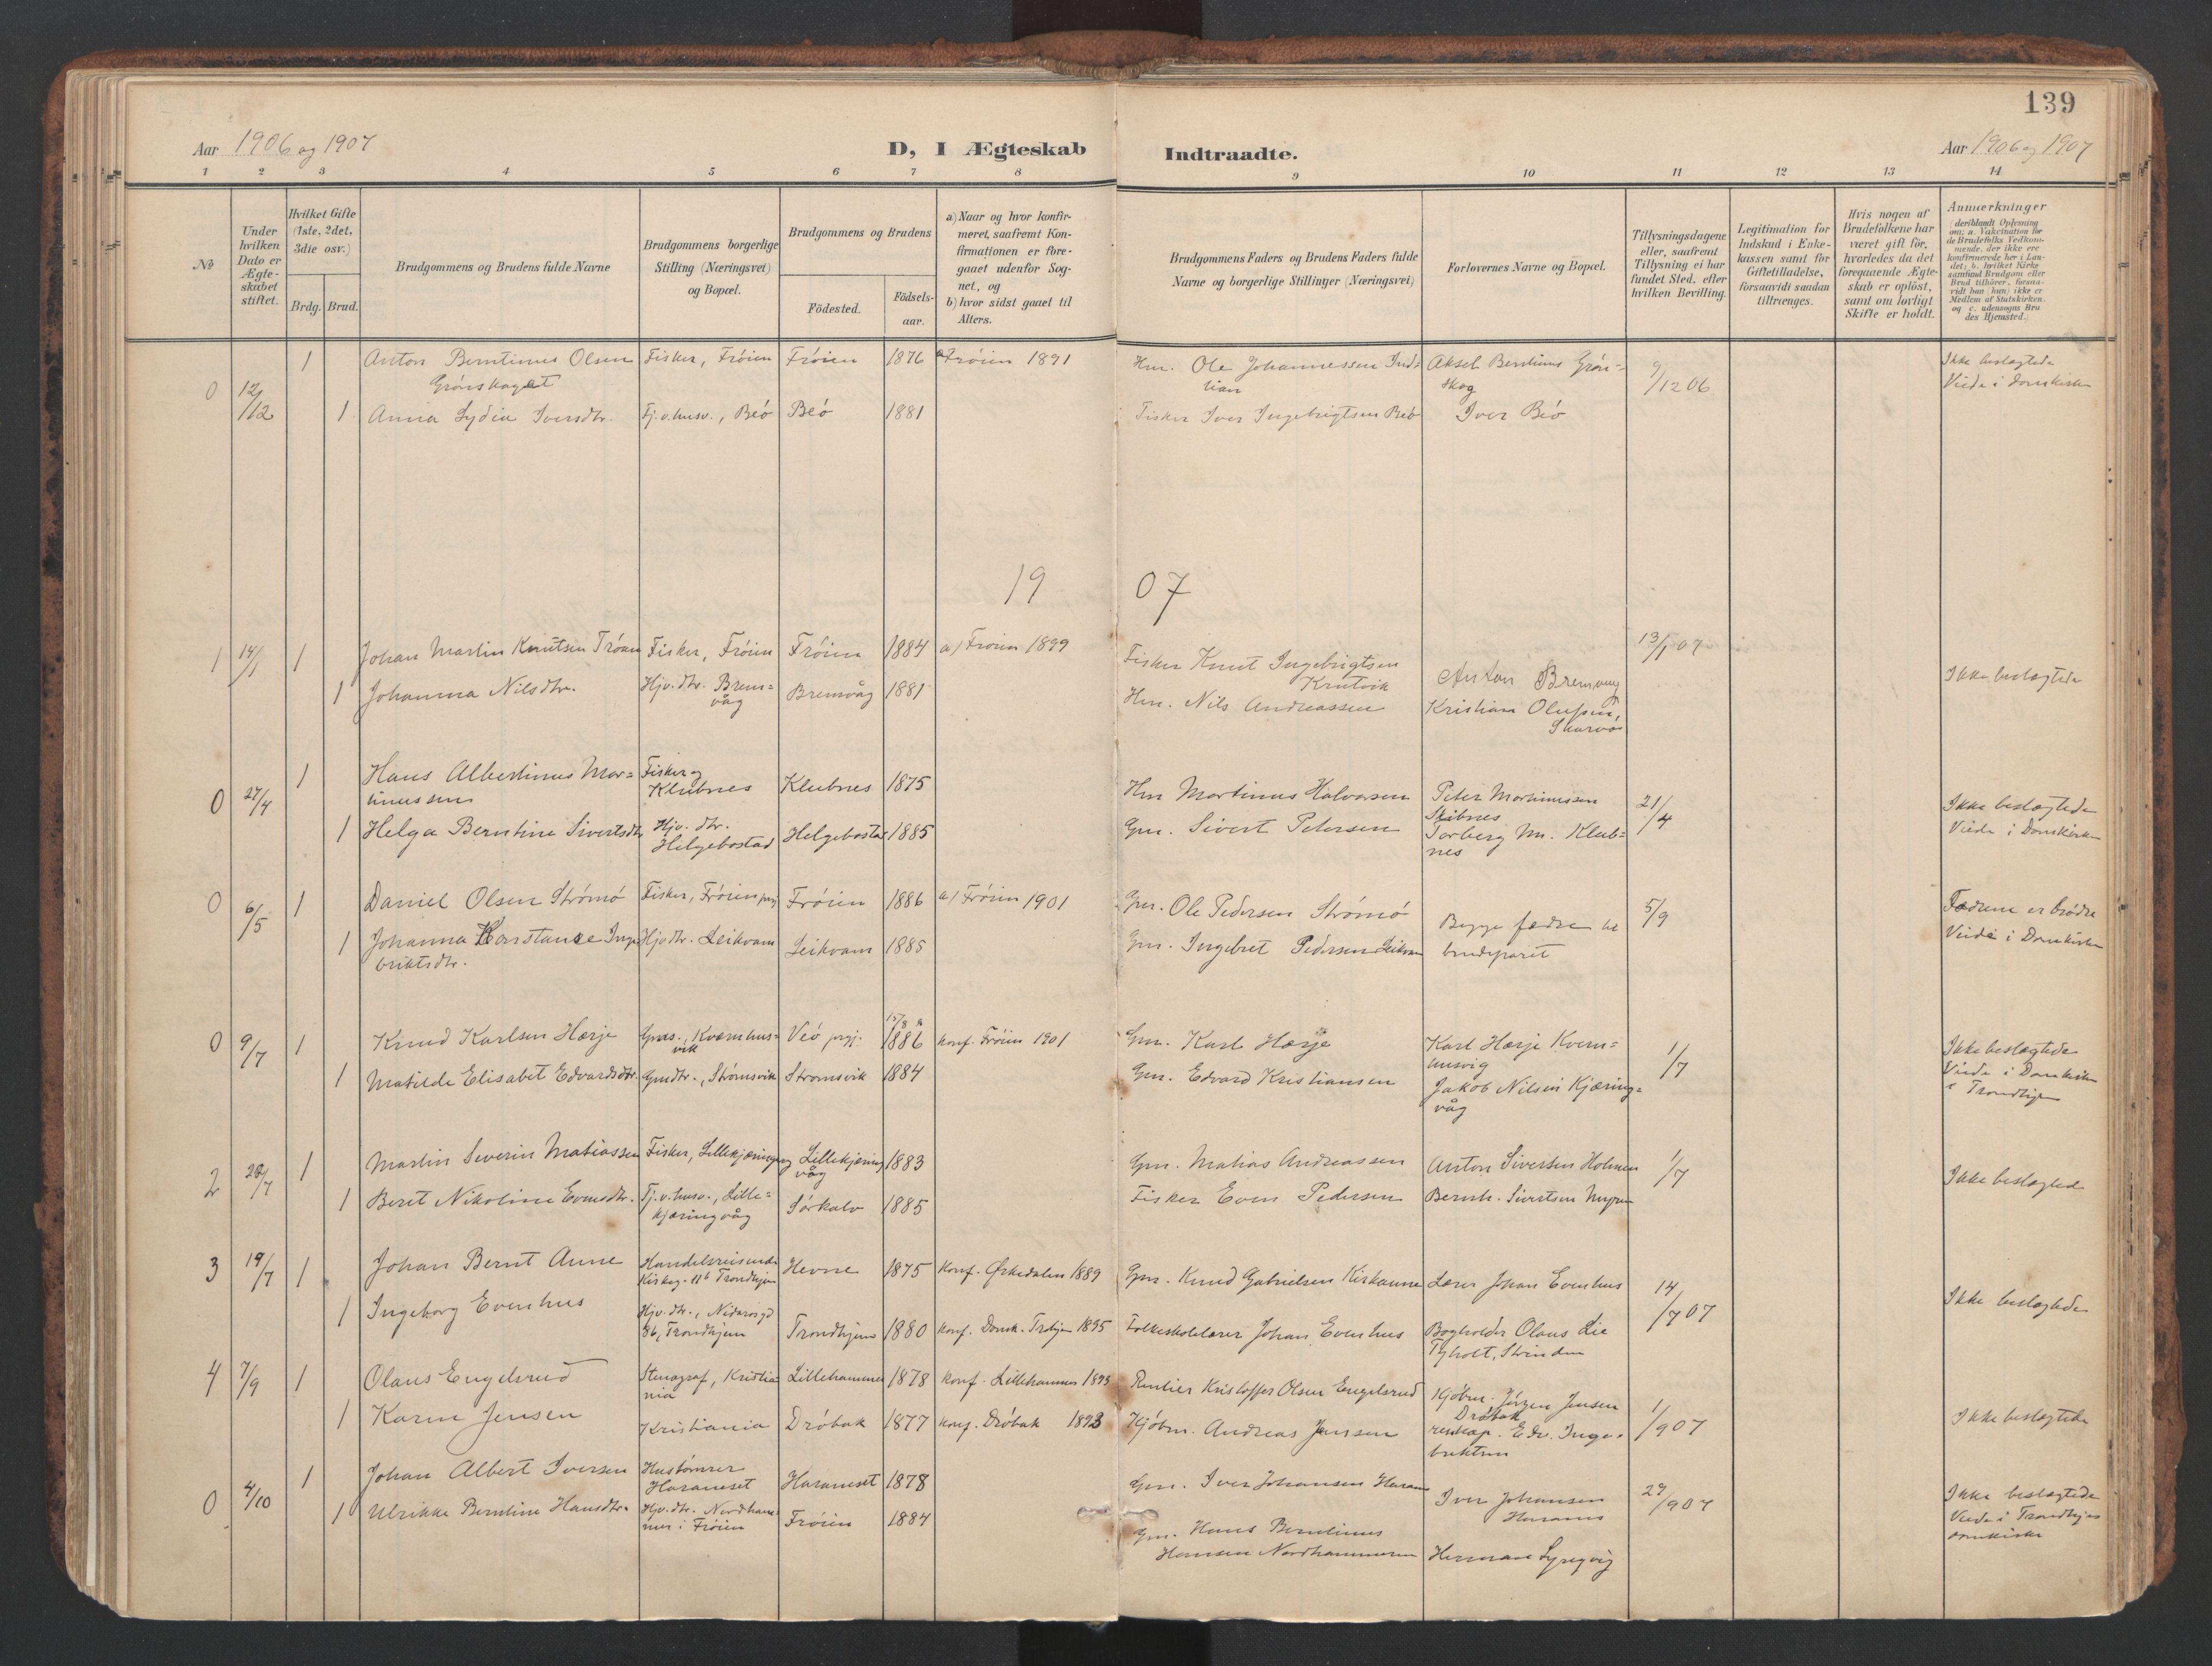 139
Aar 1906 og 1907
D, I Ægteskab Indtraadte.
Aar 1906 og 1907
1 2 3 4 5 6 7 8 9 10 11 12 13 14
No
Under hvilken Dato er Ægteskabet stiftet.
Hvilket Gifte (1ste, 2det, 3die osv.)
Brdg. Brud.
Brudgommens og Brudens fulde Navne
Brudgommens borgerlige Stilling (Næringsvei) og Bopæl.
Brudgommens og Brudens
Födested.
Födsels-aar.
a) Naar og hvor konfirmeret, saafremt Konfirmationen er foregaaet udenfor Sognet., og
b) hvor sidst gaaet til Alters.
Brudgommens Faders og Brudens Faders fulde Navne og borgerlige Stillinger (Næringsvei)
Forlovernes Navne og Bopæl.
Tillysningsdagene eller, saafremt Tillysning ei har fundet Sted, efter hvilken Bevilling.
Legitimation for Indskud i Enkekassen samt for Giftetilladelse, forsaavidt saadan tiltrænges.
Hvis nogen af Brudefolkene har været gift för, hvorledes da det foregaaende Ægteskab er oplöst, samt om lovligt Skifte er holdt.
Anmærkninger (deriblandt Oplysning om: a. Vakcination for de Brudefolks Vedkommende, der ikke ere konfirmerede her i Landet; b. hvilket Kirkesamfund Brudgom eller Brud tilhörer, forsaavidt han (hun) ikke er Medlem af Statskirken. og c. udensogns Brudes Hjemsted.)
0 12/12 1 Anton Berntinus Olsen Fisker, Fröien Fröien 1876 a Fröien 1891 Hm. Ole Johannessen Aksel Bentinus Grön= 9/12 06 Ikke beslægtede
Grönskaget skog Viede i Domkirken
1 Anna Lydia Iversdtr. Tj. v. husv., Beö Beö 1881 Fisker Iver Ingebrigtsen Beö Iver Beö
1907
1 14/1 1 Johan Martin Knutsen Tröan Fisker, Fröien Fröien 1884 a/ Fröien 1899 Fisker Knut Ingebrigtsen 13/1 07
Anton Bremvåg Ikke beslægtede
1 Johanna Nilsdtr. Hjv. dtr. Brem=
våg Bremvåg 1881 Hm. Nils Andreassen Kristian Olufsen,
0 27/4 1 Hans Albertinus Mar=
tinussen Fisker og
Klubnes Klubnes 1875 Hm Martinus Halvorsen Peter Martinussen
Skibnes 21/4 Ikke beslægtede
Viede i Domkirken
1 Helga Berntine Sivertsdtr Hjv. dtr.
Helgebostad Helgebostad 1885 Gm. Sivert Petersen Torberg M. Klub=
nes
0 6/5 1 Daniel Olsen Strömö Fisker, Fröien prgj Fröien 1886 a/ Fröien 1901 Gm. Ole Pedersen Strömö Begge fædre til
brudeparet 5/9 Fædrene er brödre
Viede i Domkirken
1 Johanna Konstanse Inge
briktsdtr. Hjv dtr. Leikvam Leikvam 1885 Gm. Ingebret Pedersen Leikvam
0 9/7 1 Knud Karlsen Hærje Gms., Kværnhus=
vik Veö prgj. 15/8 1886 konf. Fröien 1901 Gm. Karl Hærje Karl Hærje Kvern=
husvig 1/7 Ikke beslægtede
Viede i Domkirken
i Trondhjem
1 Matilde Elisabet Edvardsdtr. Gmdtr., Strömsvik Strömsvik 1884 Gm. Edvard Kristiansen Jakob Nilsen Kjæring=
våg
2 28/7 1 Martin Severin Matiassen Fisker, Lillekjæringvåg Lillekjæring
våg 1883 Gm. Matias Andreassen Anton Sivertsen Holmen 1/7 Ikke beslægted
1 Beret Nikoline Evensdtr. Tj. v. husv., Lille=
kjæringvåg Sörkalv 1885 Fisker Even Pedersen Bernh. Sivertsen Nypan
3 19/7 1 Johan Bernt Aune Handelsreisende
Kirkeg. 11b Trondhjem Hevne 1875 Konf. Ørkedalen 1889 Gm. Knud Gabrielsen Kirkaune Lærer Johan Evenhus 14/7 07 Ikke beslægtede
1 Ingeborg Evenhus Hjv. dtr., Nidarosgd
86, Trondhjem Trondhjem 1880 konf. Domk. Trohjem 1895 Folkeskolelærer Johan Evenhus Bogholder Olaus Lie
Tyholt, Strinden
4 7/9 1 Olaus Engelsrud Stenograf, Kristia
nia Lillehammer 1878 konf. Lillehammer 1893 Rentier Kristoffer Olsen Engelsrud Kjöbm. Jörgen Jensen
Dröbak 1/9 07 Ikke beslægtede
1 Karen Jensen Kristiania Dröbak 1877 konf. Dröbak 1893 Kjöbm. Andreas Jensen renskap. Edv. Inge=
brektsen
0 4/10 1 Johan Albert Iversen Hustömrer
Harameset Harameset 1878 Gm. Iver Johansen Harams Iver Johansen
Harams 29/9 07 Ikke beslægtede
Viede i Trondhjems
domkirke
1 Ulrikke Berntine Hansdtr. Hjv. dtr. Nordham=
mer i Fröien Fröien 1884 Gm. Hans Berntinus
Hansen Nordhammeren Herman